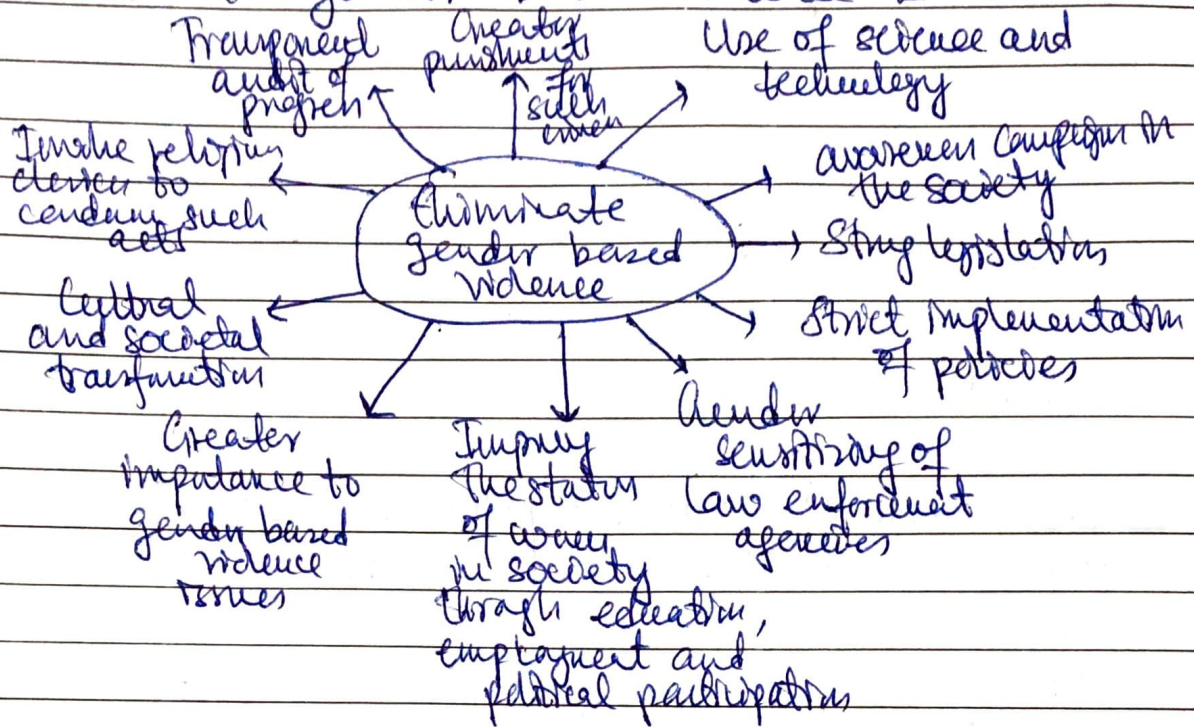 Eliminate
gender based
violence
Transparent
audit of
progress
Greater
punishment
for
such
crimes
Use of science and
technology
awareness campaign in
the society
Strong legislation
Strict implementation
of policies
Gender
sensitizing of
law enforcement
agencies
Improving
the status
of women
in society
through education,
employment and
political participation
Greater
importance to
gender based
violence
issues
Cultural
and societal
transformation
Involve religious
clerics to
condemn such
acts